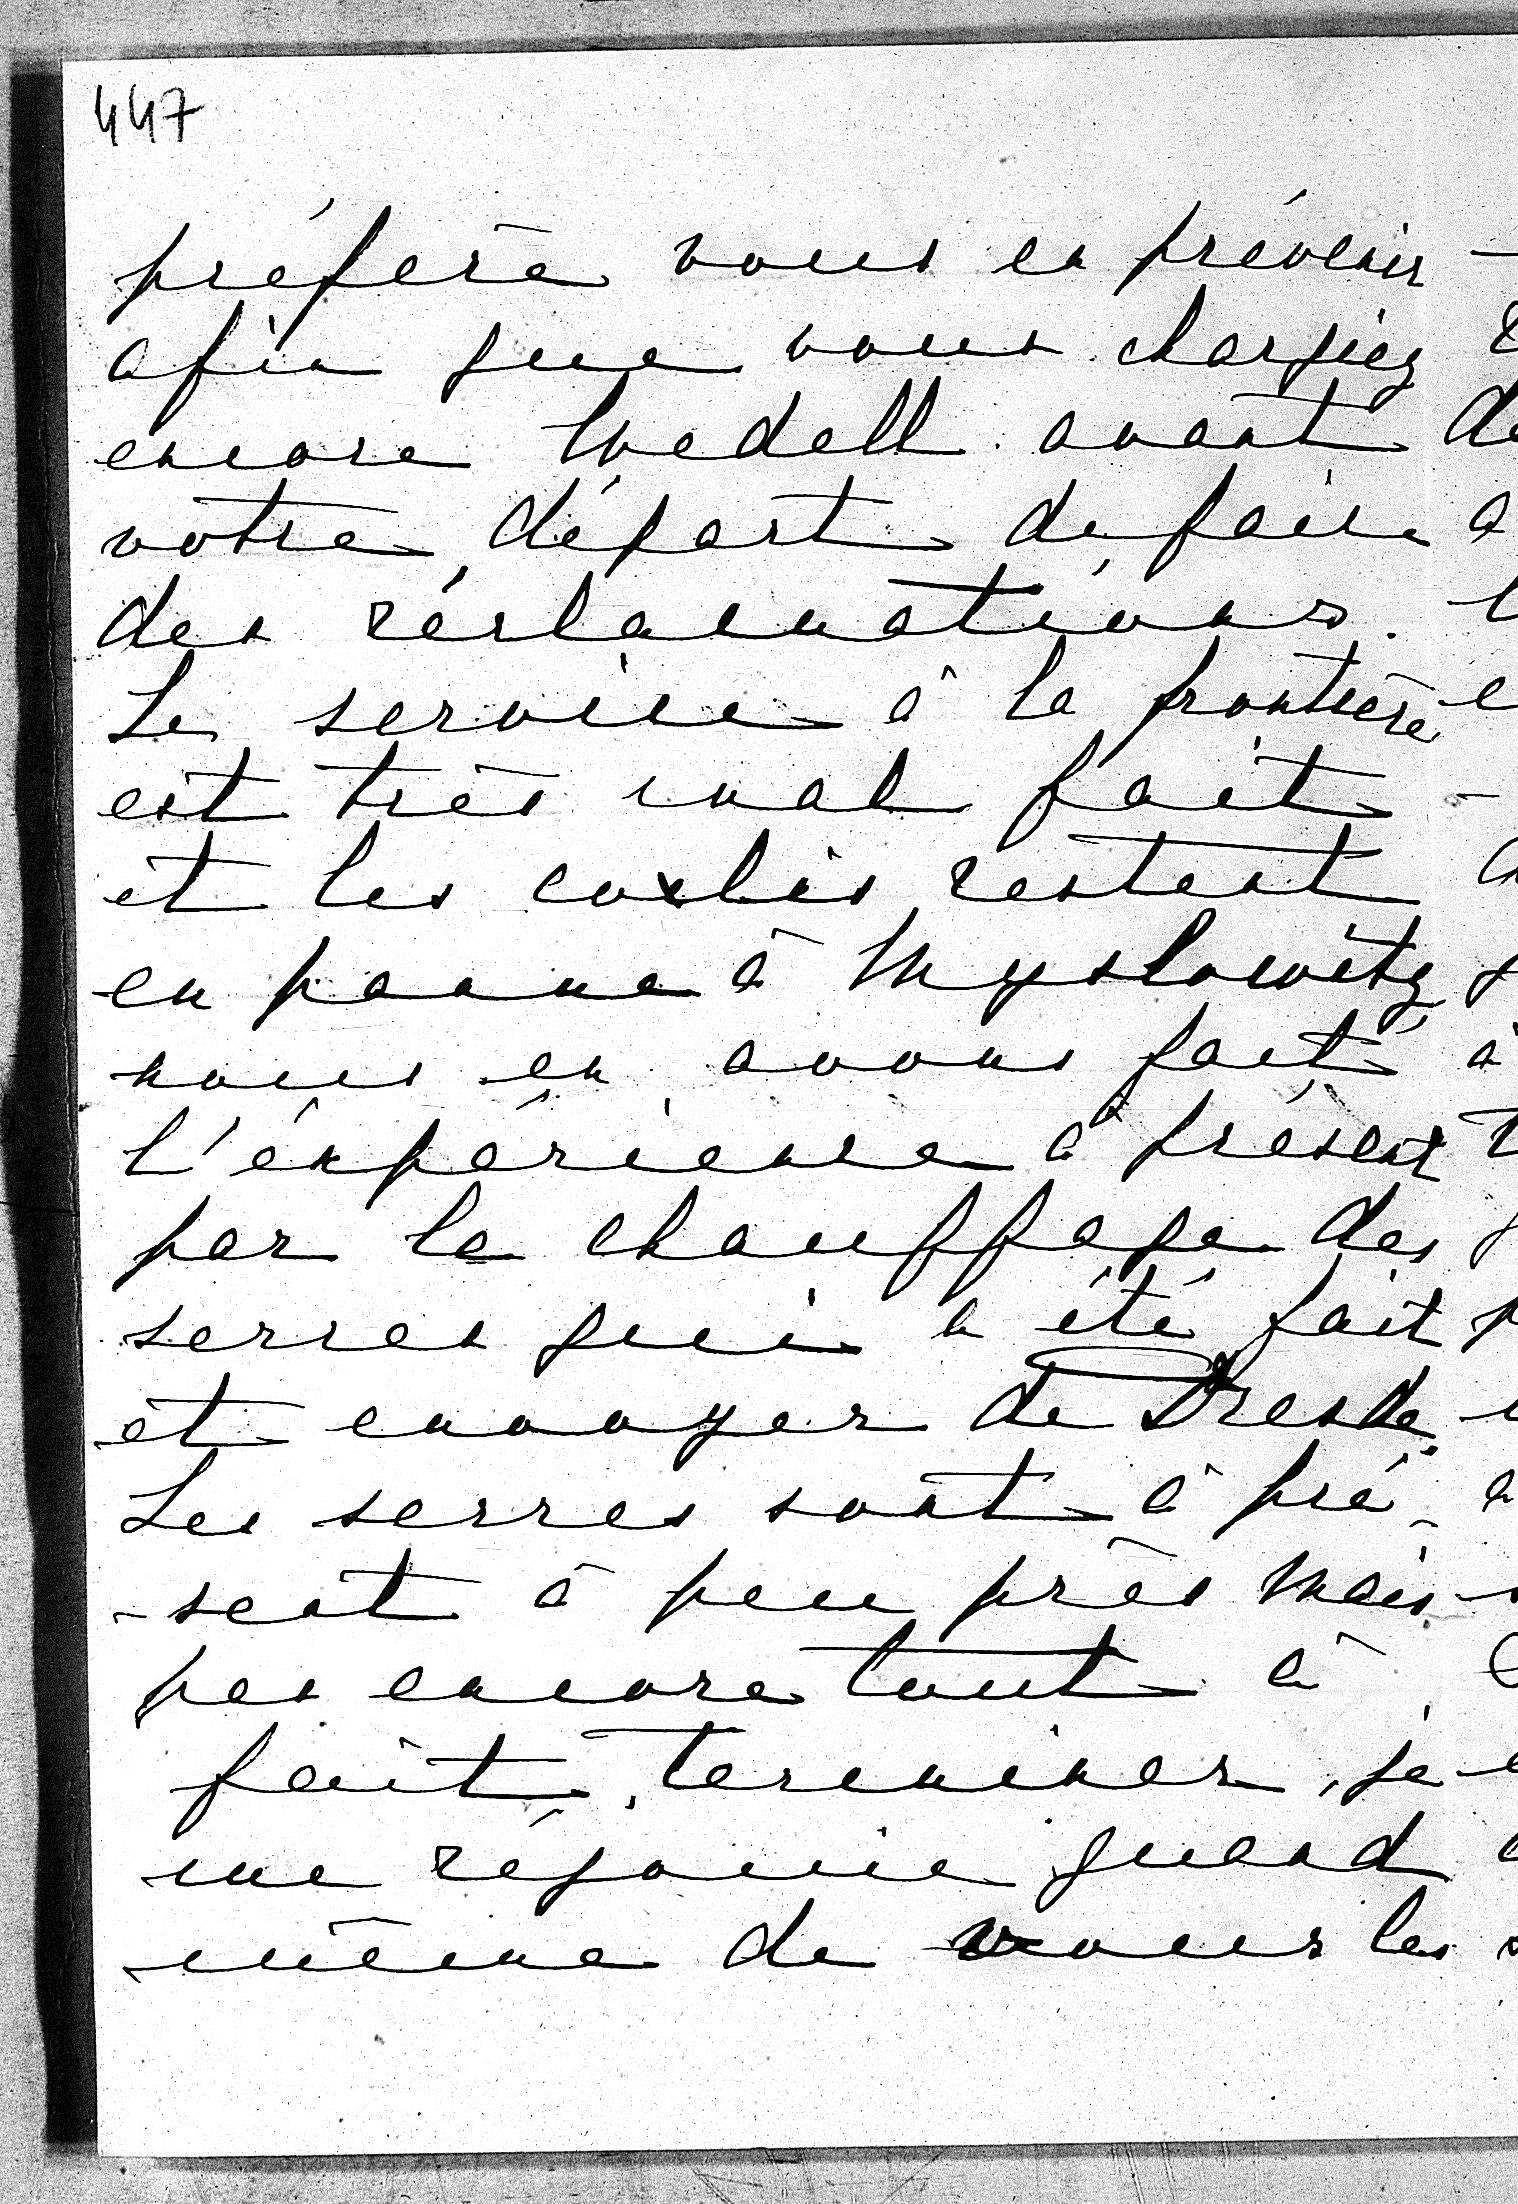 447
préfère vous en prévenir
afin que vous chargiez
encore Wedell avant de
votre départ de faire
des réclamations.
Le service à la frontière
est très mal fait -
et les colis restent
en panne à Myslowitz
nous en avons fait
l'éxpérience à présent
par le chauffage des
serres qui a été fait
et envoyer de Dresde.
Les serres sont à pré-
-sent à peu près mais
pas encore tout à
fait terminer, je
me réjouie quand
même de vous les